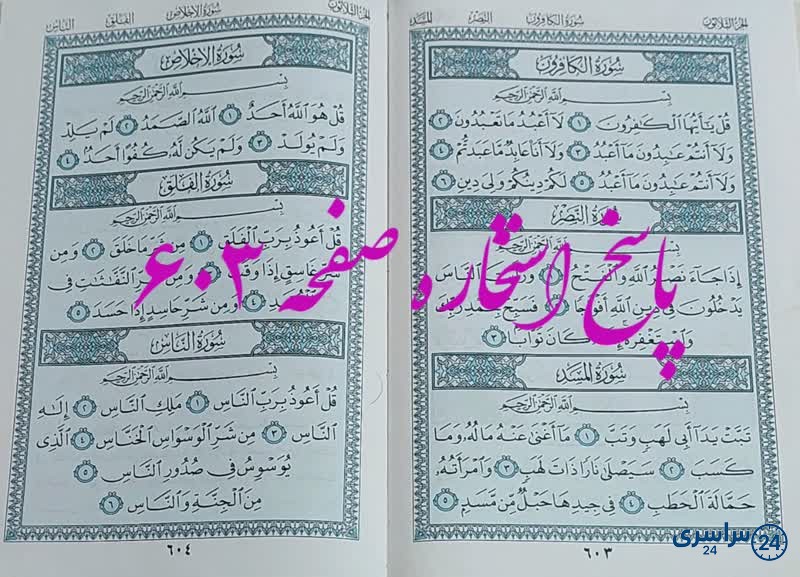 الجزء الثلاثون
سورة الكافرون
النصر
المسد
سُورَةُ الكَافِرُونَ
بِسْمِ اللَّهِ الرَّحْمَٰنِ الرَّحِيمِ
قُلْ يَٰٓأَيُّهَا ٱلْكَٰفِرُونَ ١ لَآ أَعْبُدُ مَا تَعْبُدُونَ ٢
وَلَآ أَنتُمْ عَٰبِدُونَ مَآ أَعْبُدُ ٣ وَلَآ أَنَا۠ عَابِدٌ مَّا عَبَدتُّمْ ٤
وَلَآ أَنتُمْ عَٰبِدُونَ مَآ أَعْبُدُ ٥ لَكُمْ دِينُكُمْ وَلِىَ دِينِ ٦
سُورَةُ النَّصْرِ
بِسْمِ اللَّهِ الرَّحْمَٰنِ الرَّحِيمِ
إِذَا جَآءَ نَصْرُ ٱللَّهِ وَٱلْفَتْحُ ١ ٱلنَّاسَ
يَدْخُلُونَ فِى دِينِ ٱللَّهِ أَفْوَاجًا ٢ فَسَبِّحْ بِحَمْدِ رَبِّكَ
وَٱسْتَغْفِرْهُ كَانَ تَوَّابًۢا ٣
سُورَةُ المَسَدِ
بِسْمِ اللَّهِ الرَّحْمَٰنِ الرَّحِيمِ
تَبَّتْ يَدَآ أَبِى لَهَبٍ وَتَبَّ ١ مَآ أَغْنَىٰ عَنْهُ مَالُهُۥ وَمَا
كَسَبَ ٢ سَيَصْلَىٰ نَارًا ذَاتَ لَهَبٍ ٣ وَٱمْرَأَتُهُۥ
حَمَّالَةَ ٱلْحَطَبِ ٤ فِى جِيدِهَا حَبْلٌ مِّن مَّسَدٍۭ ٥
٦٠٣
الجزء الثلاثون
سورة الإخلاص
الفلق
الناس
سُورَةُ الإِخْلَاصِ
بِسْمِ اللَّهِ الرَّحْمَٰنِ الرَّحِيمِ
قُلْ هُوَ ٱللَّهُ أَحَدٌ ١ ٱللَّهُ ٱلصَّمَدُ ٢ لَمْ يَلِدْ
وَلَمْ يُولَدْ ٣ وَلَمْ يَكُن لَّهُۥ كُفُوًا أَحَدٌۢ ٤
سُورَةُ الفَلَقِ
بِسْمِ اللَّهِ الرَّحْمَٰنِ الرَّحِيمِ
قُلْ أَعُوذُ بِرَبِّ ٱلْفَلَقِ ١ مِن شَرِّ مَا خَلَقَ ٢ وَمِن
شَرِّ غَاسِقٍ إِذَا وَقَبَ ٣ وَمِن شَرِّ ٱلنَّفَّٰثَٰتِ فِى
ٱلْعُقَدِ ٤ وَمِن شَرِّ حَاسِدٍ إِذَا حَسَدَ ٥
سُورَةُ النَّاسِ
بِسْمِ اللَّهِ الرَّحْمَٰنِ الرَّحِيمِ
قُلْ أَعُوذُ بِرَبِّ ٱلنَّاسِ ١ مَلِكِ ٱلنَّاسِ ٢ إِلَٰهِ
ٱلنَّاسِ ٣ مِن شَرِّ ٱلْوَسْوَاسِ ٱلْخَنَّاسِ ٤ ٱلَّذِى
يُوَسْوِسُ فِى صُدُورِ ٱلنَّاسِ ٥
مِنَ ٱلْجِنَّةِ وَٱلنَّاسِ ٦
٦٠٤
پاسخ استخاره صفحه ۶۰۳
سراسری 24
24